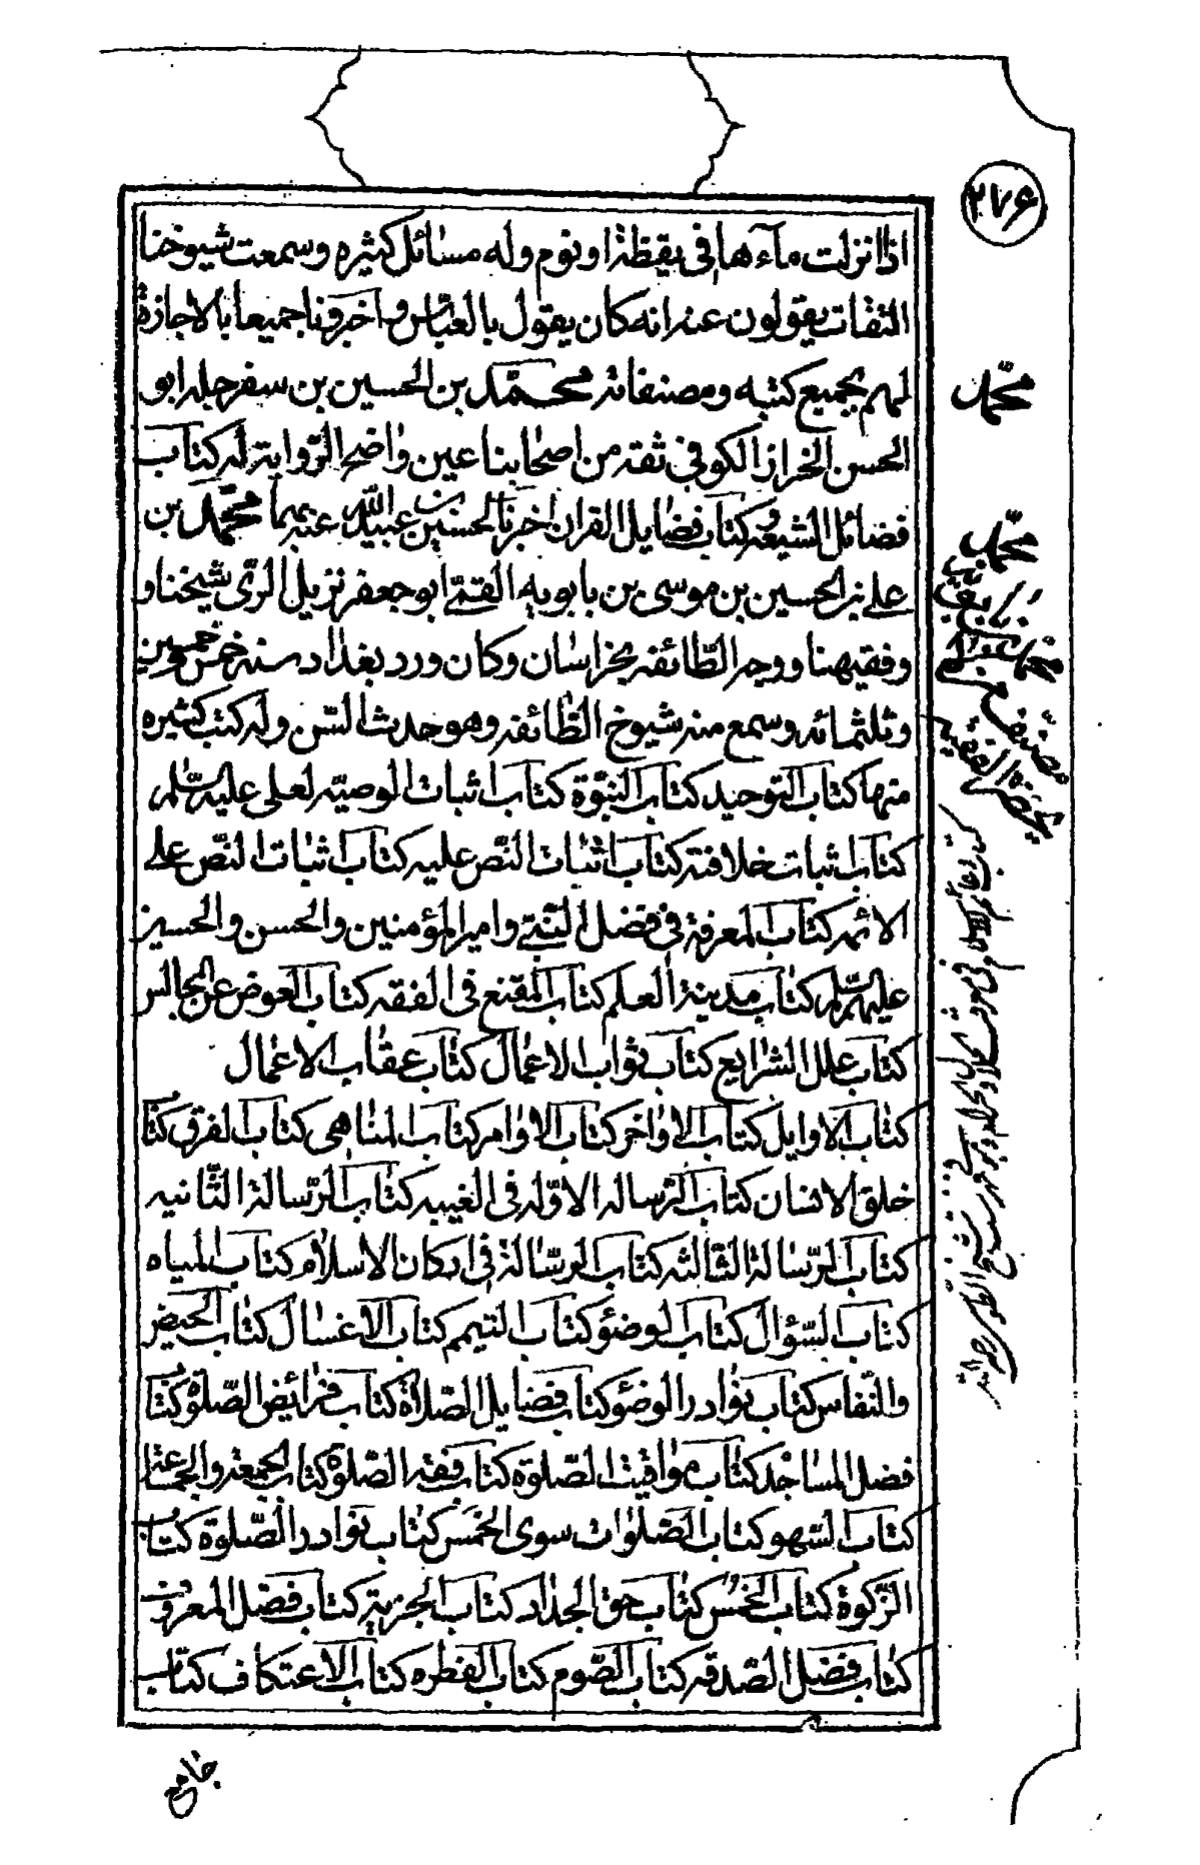 ٢٧۶
اذا نزلت ماءها فى يقظة او نوم وله مسائل كثيره وسمعت شيوخنا
الثقات يقولون عنه انه كان يقول بالقياس و اخبرونا جميعا بالاجازة
لهم بجميع كتبه ومصنفاته محمّد بن الحسين بن سفرجله ابو
الحسن الخزاز الكوفى ثقه من اصحابنا عين واضح الرّواية له كتاب
فضائل الشيعه و كتاب فضايل القران اخبرنا الحسين بن عبيد اللّه عنه بهما محمّد بن
على بن الحسين بن موسى بن بابويه القمّى ابو جعفر نزيل الرّى شيخنا و
و فقيهنا ووجه الطّائفه بخراسان وكان ورد بغداد سنه خمس خمسين
وثلثمائه وسمع منه شيوخ الطّائفه وهو حدث السّن وله كتب كثيره
منها كتاب التوحيد كتاب النبّوة كتاب اثبات الوصيّه لعلى عليه السّلم
كتاب اثبات خلافته كتاب اثبات النصّ عليه كتاب اثبات النصّ على
الائمه كتاب المعرفة فى فضل النّبىّ وامير المؤمنين والحسن والحسين
عليهم السّلم كتاب مدينة العلم كتاب المقنع فى الفقه كتاب العوض عن المجالس
كتاب علل الشرايع كتاب ثواب الاعمال كتاب عقاب الاعمال
كتاب الاوايل كتاب الاواخر كتاب الاوامر كتاب المناهى كتاب الفرق كتا
خلق الانسان كتاب الرّساله الاوّله فى الغيبه كتاب الرّسالة الثّانيه
كتاب الرّسالة الثّالثه كتاب الرسّالة فى اركان الاسلام كتاب المياه
كتاب السّؤال كتاب الوضؤ كتاب التيمم كتاب الاغسال كتاب الحيض
والنّفاس كتاب نوادر الوضؤ كتاب فضايل الصّلاة كتاب فرائض الصّلوة كتا
فضل المساجد كتاب مواقيت الصّلوة كتاب فقه الصّلوة كتاب الجمعة والجماعة
كتاب السّهو كتاب الصّلوات سوى الخمس كتاب نوادر الصّلوة كتاب
الزّكوة كتاب الخمس كتاب حق الجداد كتاب الجزية كتاب فضل المعروف
كتاب فضل الصّدقه كتاب الصّوم كتاب الفطره كتاب الاعتكاف كتاب
محمّد
محمّد
بن
مصنف
يحضره الفقيه
جامع